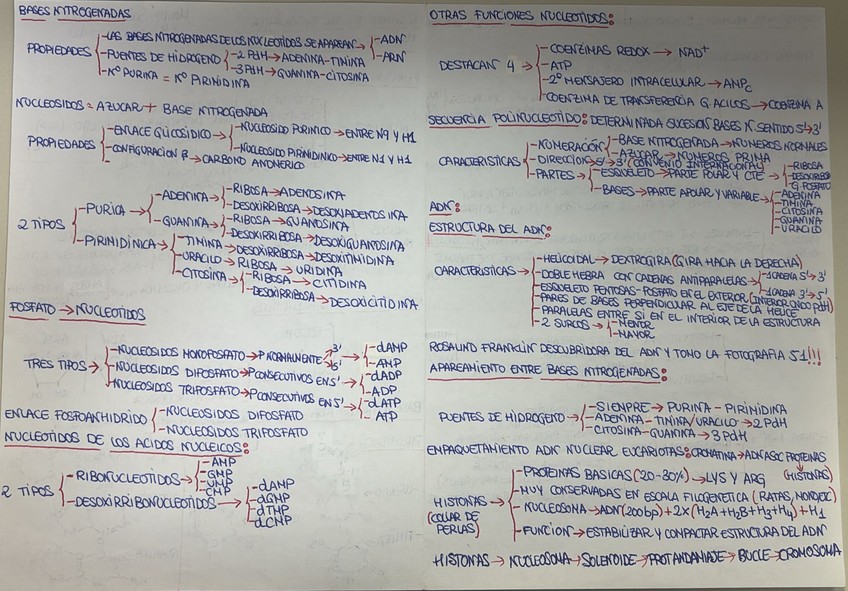 BASES NITROGENADAS
PROPIEDADES
-LAS BASES NITROGENADAS DE LOS NUCLEOTIDOS SE APAREAN → -ADN
-ARN
-PUENTES DE HIDROGENO → -2 PdH → ADENINA-TIMINA
-3PdH → GUANINA-CITOSINA
-Nº PURINA = Nº PIRINIDINA
NUCLEOSIDOS = AZUCAR + BASE NITROGENADA
PROPIEDADES
-ENLACE GLUCOSÍDICO → -NUCLEOSIDO PURINICO → ENTRE N9 Y H1
-NUCLEOSIDO PIRINIDINICO → ENTRE N1 Y H1
-CONFIGURACION β → CARBONO ANOMERICO
2 TIPOS
-PURICA → -ADENINA → -RIBOSA → ADENOSINA
-DESOXIRRIBOSA → DESOXIADENOSINA
-GUANINA → -RIBOSA → GUANOSINA
-DESOXIRRIBOSA → DESOXIGUANOSINA
-PIRINIDINICA → -TIMINA → DESOXIRRIBOSA → DESOXITIMIDINA
-URACILO → RIBOSA → URIDINA
-CITOSINA → -RIBOSA → CITIDINA
-DESOXIRRIBOSA → DESOXICITIDINA
FOSFATO → NUCLEOTIDOS
TRES TIPOS →
-NUCLEOSIDOS MONOFOSFATO → P NORMALMENTE 3' 5' → -dAMP
-AMP
-NUCLEOSIDOS DIFOSFATO → P CONSECUTIVOS EN 5' → -dADP
-ADP
-NUCLEOSIDOS TRIFOSFATO → P CONSECUTIVOS EN 5' → -dATP
-ATP
ENLACE FOSFOANHIDRIDO
-NUCLEOSIDOS DIFOSFATO
-NUCLEOSIDOS TRIFOSFATO
NUCLEOTIDOS DE LOS ACIDOS NUCLEICOS:
2 TIPOS
-RIBONUCLEOTIDOS → -AMP
-GMP
-UMP
-CMP
-DESOXIRRIBONUCLEOTIDOS → -dAMP
-dGMP
-dTMP
-dCMP
OTRAS FUNCIONES NUCLEOTIDOS:
DESTACAN 4 →
-COENZIMAS REDOX → NAD+
-ATP
-2º MENSAJERO INTRACELULAR → AMPc
-COENZIMA DE TRANSFERENCIA G. ACILOS → COENZIMA A
SECUENCIA POLINUCLEOTIDO: DETERMINADA SUCESION BASES N. SENTIDO 5'→3'
CARACTERISTICAS
-NUMERACIÓN → -BASE NITROGENADA → NUMEROS NORMALES
-AZUCAR → NUMEROS PRIMA
-DIRECCION → 5'→3' (CONVENIO INTERNACIONAL)
-PARTES → -ESQUELETO → PARTE POLAR Y CTE → -RIBOSA
-DESOXIRRIBO
-G. FOSFATO
-BASES → PARTE APOLAR Y VARIABLE → -ADENINA
-TIMINA
-CITOSINA
-GUANINA
-URACILO
ADN:
ESTRUCTURA DEL ADN:
CARACTERISTICAS →
-HELICOIDAL → DEXTROGIRA (GIRA HACIA LA DERECHA)
-DOBLE HEBRA CON CADENAS ANTIPARALELAS → -1 CADENA 5'→3'
-1 CADENA 3'→5'
-ESQUELETO PENTOSAS-FOSFATO EN EL EXTERIOR (INTERIOR UNIDO PdH)
-PARES DE BASES PERPENDICULAR AL EJE DE LA HELICE
-PARALELAS ENTRE SI EN EL INTERIOR DE LA ESTRUCTURA
-2 SURCOS → -MENOR
-MAYOR
ROSALIND FRANKLIN DESCUBRIDORA DEL ADN Y TOMO LA FOTOGRAFIA 51!!!
APAREAMIENTO ENTRE BASES NITROGENADAS:
PUENTES DE HIDROGENO →
-SIEMPRE → PURINA - PIRINIDINA
-ADENINA - TIMINA/URACILO → 2 PdH
-CITOSINA-GUANINA → 3 PdH
EMPAQUETAMIENTO ADN NUCLEAR EUCARIOTAS: CROMATINA → ADN ASC PROTEINAS
(HISTONAS)
HISTONAS →
(COLLAR DE PERLAS)
-PROTEINAS BASICAS (20-30%) → LYS Y ARG
-MUY CONSERVADAS EN ESCALA FILOGENETICA (RATAS,
-NUCLEOSOMA → ADN (200bp) + 2X (H2A + H2B + H3 + H4) + H1
-FUNCION → ESTABILIZAR Y COMPACTAR ESTRUCTURA DEL ADN
HISTONAS → NUCLEOSOMA → SOLENOIDE → → BUCLE → CROMOSOMA